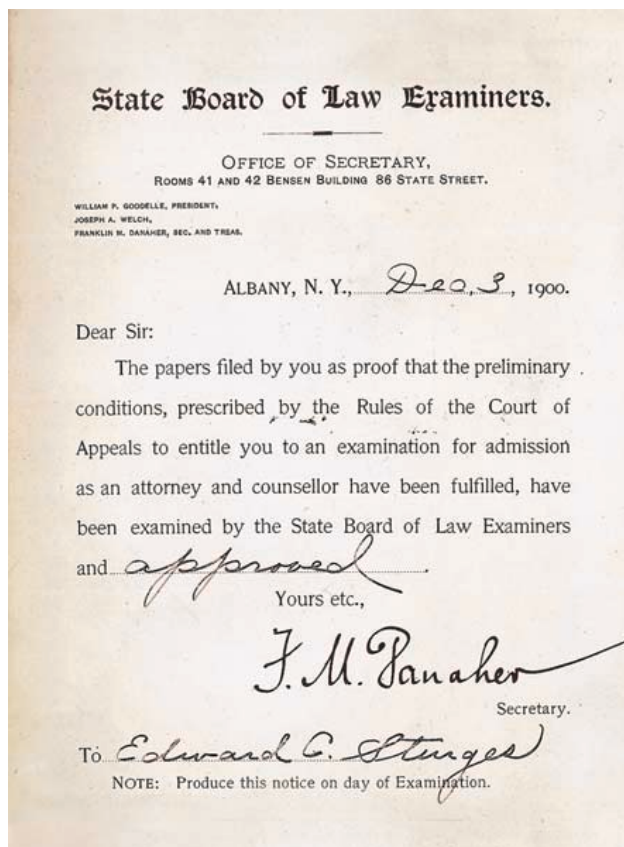 State Board of Law Examiners.
OFFICE OF SECRETARY,
ROOMS 41 AND 42 BENSEN BUILDING 86 STATE STREET.
WILLIAM P. GOODELLE, PRESIDENT,
JOSEPH A. WELCH,
FRANKLIN M. DANAHER, SEC. AND TREAS.
ALBANY, N. Y., Dec, 3, 1900.
Dear Sir:
The papers filed by you as proof that the preliminary
conditions, prescribed by the Rules of the Court of
Appeals to entitle you to an examination for admission
as an attorney and counsellor have been fulfilled, have
been examined by the State Board of Law Examiners
and approved.
Yours etc.,
F. M. Danaher
Secretary.
To Edward C. Sturges
NOTE: Produce this notice on day of Examination.